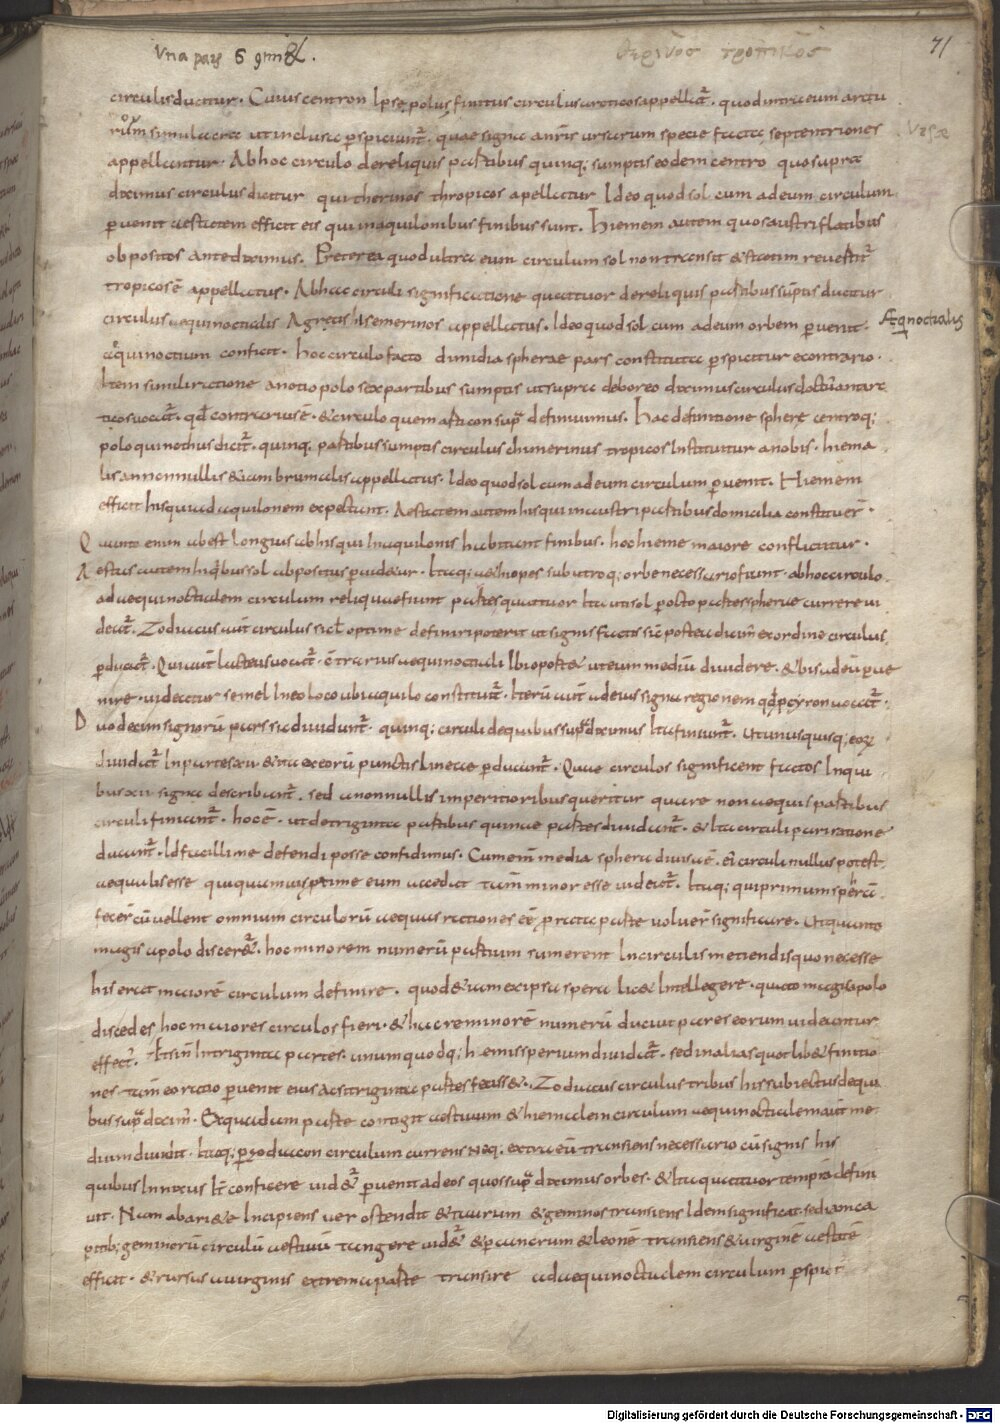 Una pars 6 continet.
θερινος τροπικος
71
circulis ducitur. Cuius centron Ipse polus finitus circulus arcticos appellat̄. quod intra eum arctu
rūm simulacra ut inclusa p̄spiciunt̄. quae signa anr̄is ursarum specie facta septentriones
Ursæ
appellantur. Ab hoc circulo de reliquis partibus quinq; sumptis eodem centro quo supra
diximus circulus ducitur qui therinos thropicos apellatur Ideo quod sol cum ad eum circulum
p̄uenit aestatem efficit eis qui in aquilonibus finibus sunt. Hiemem autem quos austri flatibus
obpositos ante diximus. Preterea quod ultra eum circulum sol non transit & statim reuertit̄
tropicos ē appellatus. Ab hac circuli significatione quattuor de reliquis partibus sūptis ducitur
circulus aequinoctialis A grecis hisemerinos appellatus. Ideo quod sol cum ad eum orbem p̄uenit.
Æqnoctialis
aequinoctium conficit. hoc circulo facto dimidia spherae pars constituta p̄spicitur e contrario.
Item simili ratione a notio polo sex partibus sumptis ut supra de boreo diximus circulus ductus antarc
ticos uocat̄. qd̄ contrarius ē. & circulo quem arcticon sup̄ definiuimus. Hac definitione sphere centroq;
polo qui nothus dicit̄. quinq. partibus sumptis circulus chimerinus tropicos Instituitur a nobis. hiema
lis a nonnullis & iam brumalis appellatus. Ideo quod sol cum ad eum circulum p̄uenit. Hiemem
efficit his qui ad aquilonem expectant. Aestatem autem his qui in austri partibus domicilia constituer̄.
Quanto enim abest longius ab his qui In aquilonis habitant finibus. hoc hieme maiore conflictatur.
Aestas autem hiq̄bus sol obpositus p̄uidetur. Itaq; aethiopes sub utroq; orbe necessario fiunt. ab hoc circulo
ad aequinoctialem circulum reliquae fiunt partes quattuor Ita uti sol p̄ octo partes spherae currere ui
deat̄. Zodiacus aūt circulus sic optime definiri poterit ut signis factis sic̄ postea dicim̄ ex ordine circulus
p̄ducat̄. Qui aūt lacteus uocat̄. ē̄trarius aequinoctiali Ibi oportet ut eum mediū diuidere. & bis ad eū p̄ue
nire. uideatur semel In eo loco ubi aquilo constituit̄. Iterū aūt ad eius signi regionem qd̄ p̄cyron uocat̄.
Duodecim signorū pars sic diuidunt̄. quinq; circuli de quibus sup̄ diximus Ita finiunt̄. Ut unusquisq; eorꝫ
diuidat̄ In partes xii & ita ex eorū punctis lineae p̄ducant̄. Quae circulos significent factos In qui
bus xii signa describant̄. sed a nonnullis imperitioribus queritur quare non aequis partibus
circuli finiant̄. hoc ē. ut de triginta partibus quinae partes diuidant̄. & Ita circuli pari ratione
ducant̄. Id facillime defendi posse confidimus. Cum enī media sphera diuisa ē. ei circuli nullus potest
aequalis esse quiquamuis p̄xime eum accedat tam̄ minor esse uideat̄. Itaq; qui primum sperā
fecer̄ cū uellent omnium circulorū aequas rationes eē; p̄ rata parte uoluer̄ significare. Ut quanto
magis a polo discer&̄. hoc minorem numerū partium sumerent In circulis metiendis quo necesse
his erat maiorē circulum definire. quod & iam ex ipsa spera lic& Intellegere. quāto magis a polo
discedes hoc maiores circulos fieri. & hac re minorē numerū ducat pares eorum uideantur
effect̄. Et sin̄ In triginta partes. unum quodq; hemisperium diuidat̄. sed in alias quotlib& finitio
nes tam̄ eo ratio p̄uenit eius ac si triginta partes feciss&. Zodiacus circulus tribus his subiectus de qui
bus sup̄ dixim̄. Ex quadam parte contigit aestiuum & hiemalem circulum aequinoctialem aūt me
dium diuidit. Itaq; p̄ zodiacon circulum currens neq; extra eū transiens necessario cū signis his
quibus Innixus It̄ conficere uid&̄ p̄uenit ad eos quos sup̄ diximus orbes. & Ita quattuor tempora defini
uit. Nam ab ariete Incipiens uer ostendit & taurum & geminos transiens Idem significat. sed iam ca
pitib; geminorū circulū aestiuū tangere uid&̄ & p̄ cancrum & leonē transiens & uirginē aestatē
efficit. & rursus a uirginis extrema parte transire ad aequinoctialem circulum p̄spicit̄
Digitalisierung gefördert durch die Deutsche Forschungsgemeinschaft - DFG